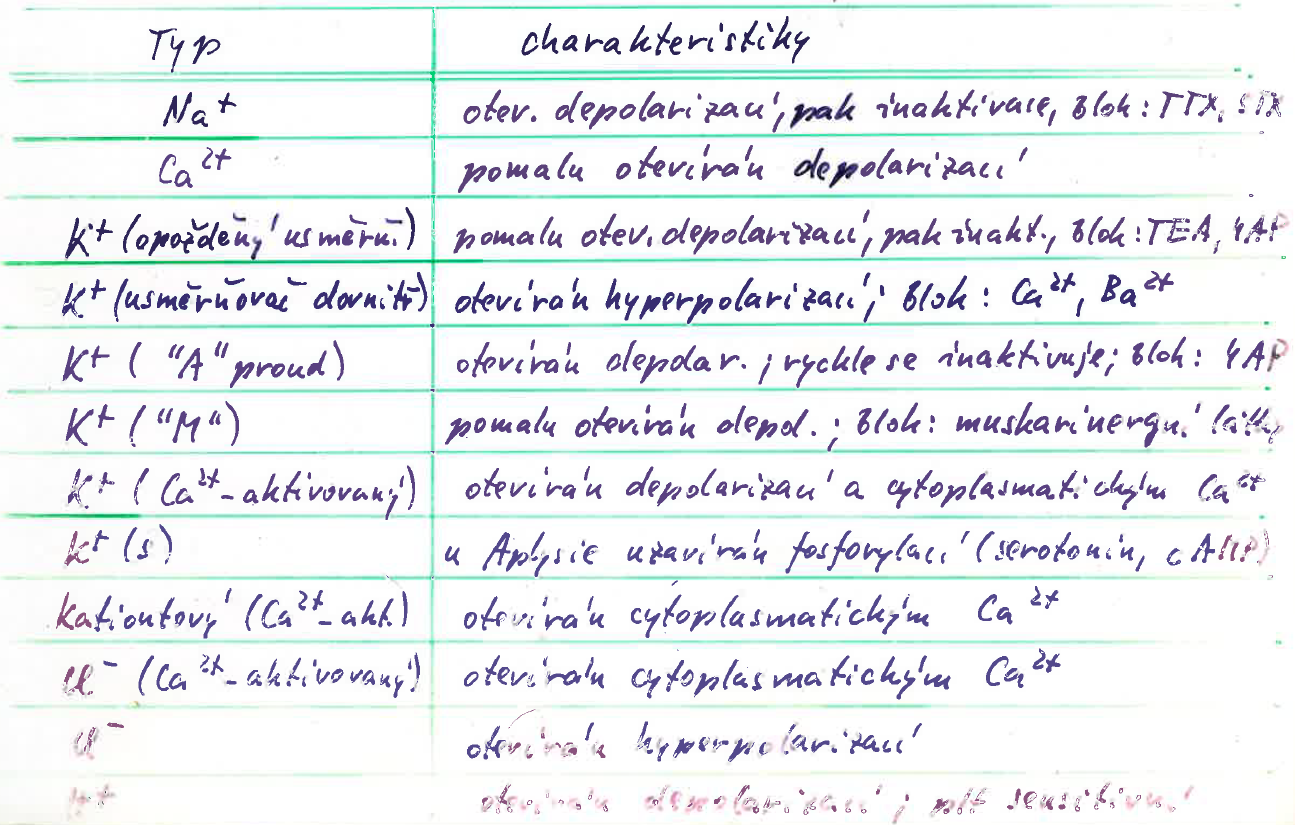 Typ charakteristiky
Na⁺ otev. depolarizací, pak inaktivace, blok: TTX, STX
Ca²⁺ pomalu otevírán depolarizací
K⁺ (opožděný usměrň.) pomalu otev. depolarizací, pak inakt., blok: TEA, 4AP
K⁺ (usměrňovač dovnitř) otevírán hyperpolarizací; blok: Ca²⁺, Ba²⁺
K⁺ ("A" proud) otevírán depolar.; rychle se inaktivuje; blok: 4AP
K⁺ ("M") pomalu otevírán depol.; blok: muskarinergní látky
K⁺ (Ca²⁺-aktivovaný) otevírán depolarizací a cytoplasmatickým Ca²⁺
K⁺ (s) u Aplysie uzavírán fosforylací (serotonin, cAMP)
Kationtový (Ca²⁺-akt.) otevírán cytoplasmatickým Ca²⁺
Cl⁻ (Ca²⁺-aktivovaný) otevírán cytoplasmatickým Ca²⁺
Cl⁻ otevírán hyperpolarizací
H⁺ otevírán depolarizací; pH sensitivní